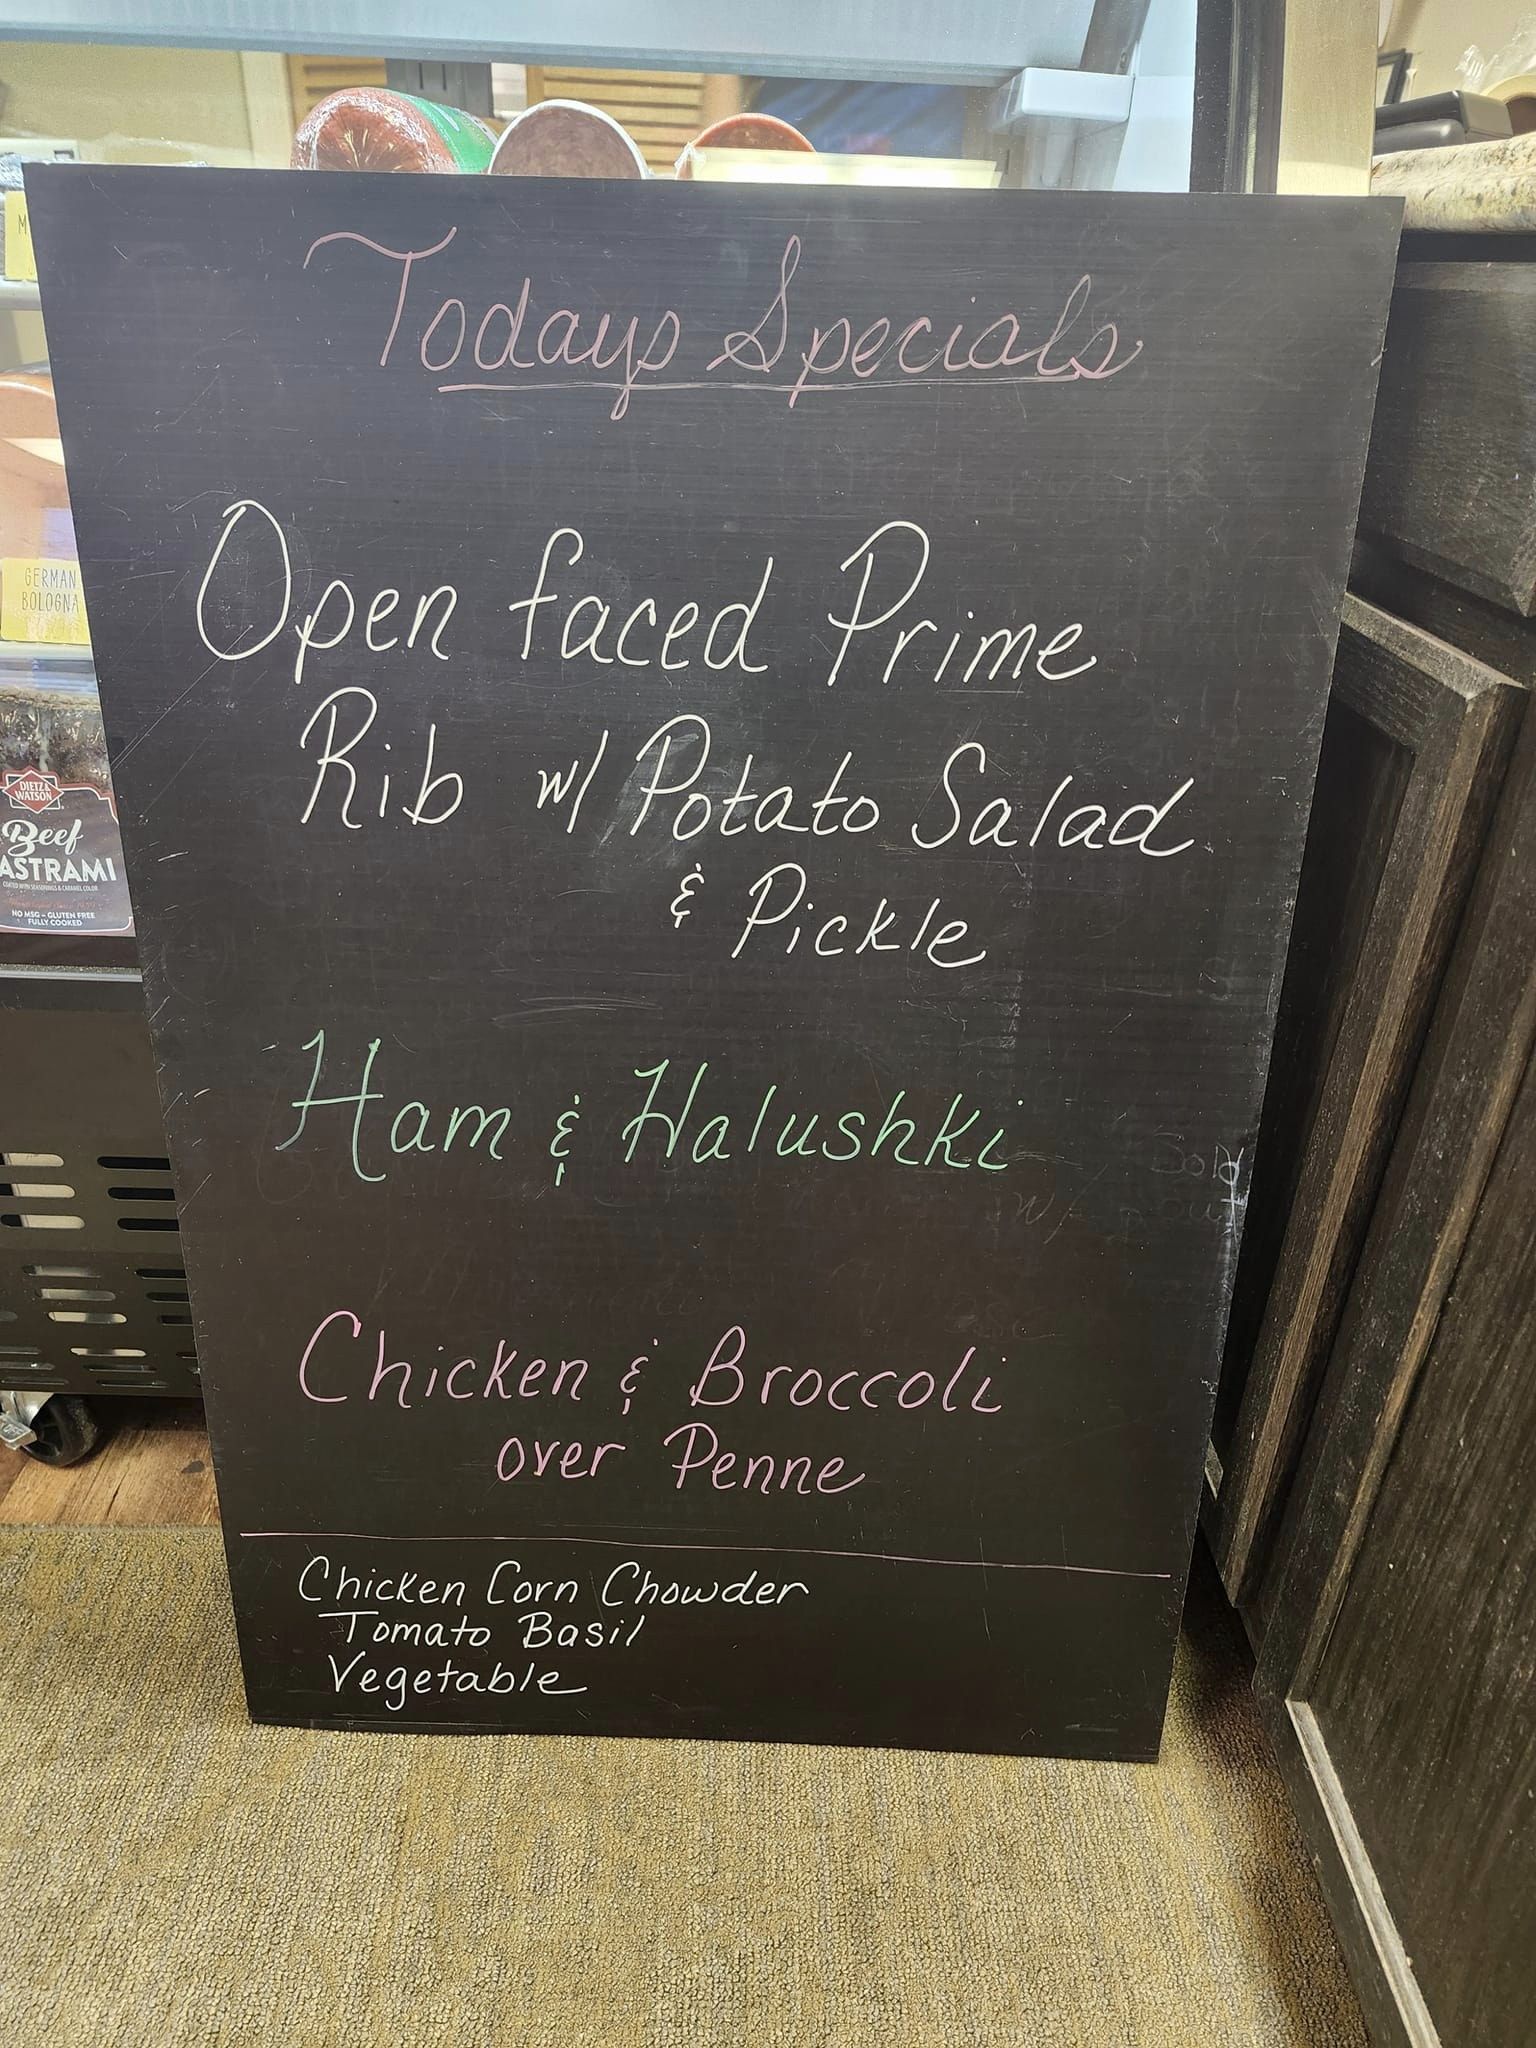 Todays Specials
Open faced Prime
Rib w/ Potato Salad
& Pickle
Ham & Halushki
Sold
out
w/
Chicken & Broccoli
over Penne
Chicken Corn Chowder
Tomato Basil
Vegetable
M
GERMAN
BOLOGNA
DIETZ &
WATSON
Beef
ASTRAMI
COATED WITH SEASONINGS & CARAMEL COLOR
NO MSG - GLUTEN FREE
FULLY COOKED